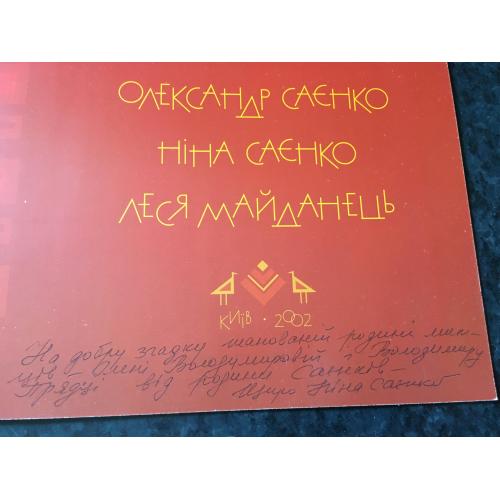 ОЛЕКСАНДР САЄНКО
НІНА САЄНКО
ЛЕСЯ МАЙДАНЕЦЬ
КИЇВ · 2002
На добру згадку шанованій родині мит-
ців – Олені Володимирівній і Володимиру
Прядці від родини Саєнків –
Щиро Ніна Саєнко